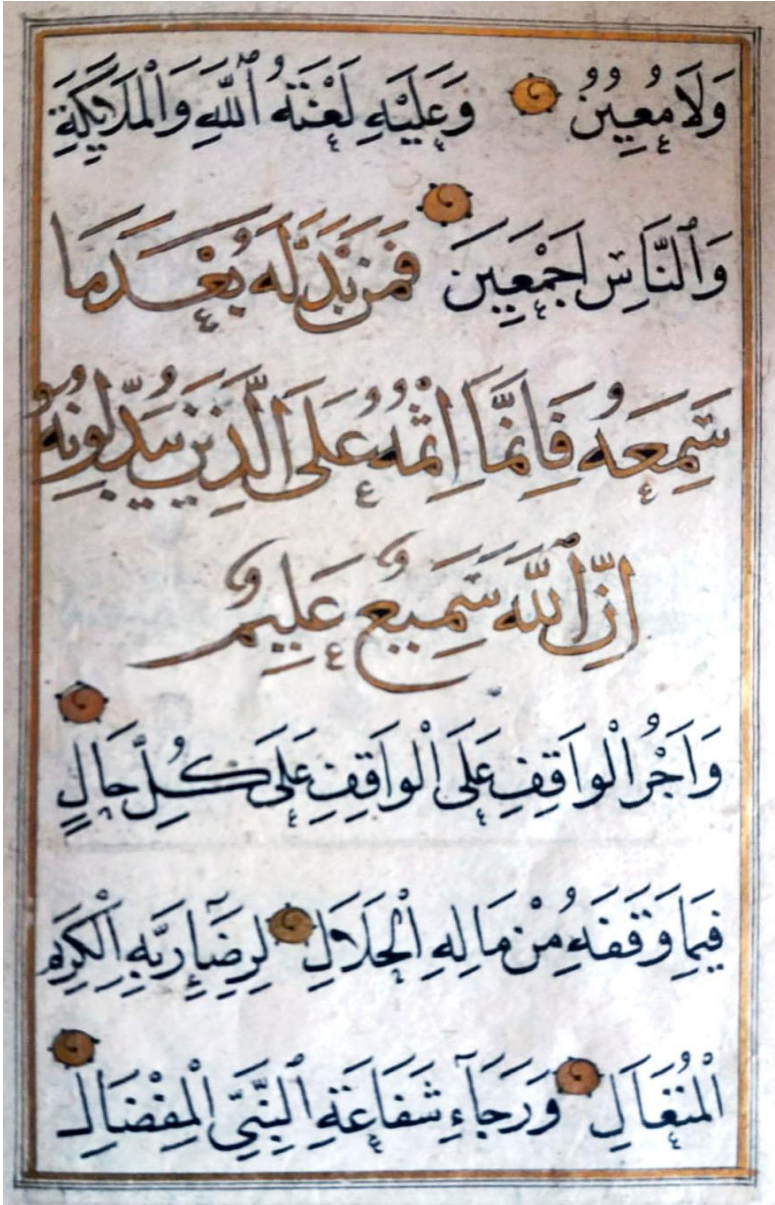 وَلَا مُعِينٌ وَعَلَيْهِ لَعْنَةُ ٱللَّهِ وَالْمَلَائِكَةِ
وَٱلنَّاسِ اَجْمَعِينَ فَمَنْ بَدَّلَهُ بَعْدَمَا
سَمِعَهُ فَاِنَّمَا اِثْمُهُ عَلَى الَّذِينَ يُبَدِّلُونَهُ
اِنَّ ٱللَّهَ سَمِيعٌ عَلِيمٌ
وَاَجْرُ الْوَاقِفِ عَلَى الْوَاقِفِ عَلَى كُلِّ حَالٍ
فِيمَا وَقَفَهُ مِنْ مَالِهِ الْحَلَالِ لِرِضَاءِ رَبِّهِ الْكَرِيمِ
الْمُتَعَالِ وَرَجَاءِ شَفَاعَةِ ٱلنَّبِيِّ الْمِفْضَالِ